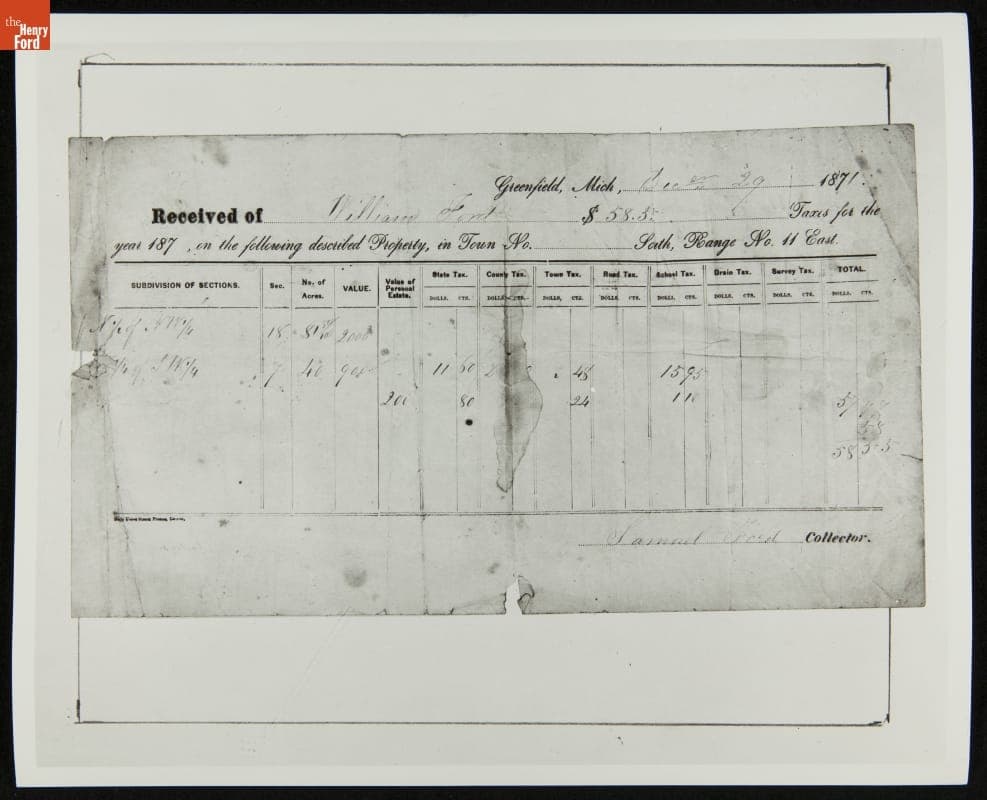 the
Henry
Ford
Greenfield, Mich, 29 1871.
Received of William Ford $ 58.5 Taxes for the
year 187 , on the following described Property, in Town No. South, Range No. 11 East.
SUBDIVISION OF SECTIONS. Sec. No. of Acres. VALUE. Value of Personal Estate. State Tax. County Tax. Town Tax. Road Tax. School Tax. Drain Tax. Survey Tax. TOTAL.
DOLLS. CTS. DOLLS. CTS. DOLLS. CTS. DOLLS. CTS. DOLLS. CTS. DOLLS. CTS. DOLLS. CTS. DOLLS. CTS.
N ½ of N W ¼ 18 81 2000
¼ of S W ¼ 7 40 900 11 60 48 15 95
200 80 24 1 10 57
58
58 55
Samuel Ford Collector.